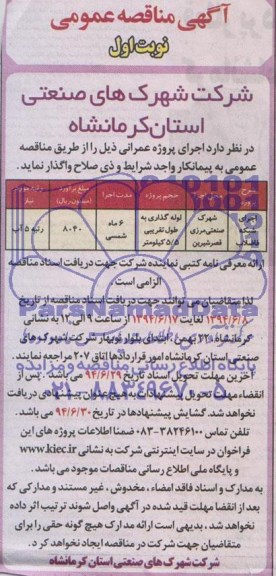 آگهی مناقصه عمومی
نوبت اول
شرکت شهرک های صنعتی
استان کرمانشاه
در نظر دارد اجرای پروژه عمرانی ذیل را از طریق مناقصه
عمومی به پیمانکار واجد شرایط و ذی صلاح واگذار نماید.
شرح پروژه محل اجرا حجم پروژه مدت اجرا مبلغ برآورد (میلیون ریال) رتبه مورد نیاز
اجرای شبکه فاضلاب شهرک صنعتی مرزی قصرشیرین لوله گذاری به طول تقریبی ۵/۵ کیلومتر ۶ ماه شمسی ۸۰۴۰ رتبه ۵ آب
ارائه معرفی نامه کتبی نماینده شرکت جهت دریافت اسناد مناقصه
الزامی است.
لذا متقاضیان می توانند جهت دریافت اسناد مناقصه از تاریخ
۱۳۹۴/۶/۸ لغایت ۱۳۹۴/۶/۱۷ از ساعت ۹ الی ۱۲ به نشانی
کرمانشاه، ۲۲ بهمن، ابتدای بلوار نوبهار شرکت شهرک های
صنعتی استان کرمانشاه امور قراردادها اتاق ۲۰۷ مراجعه نمایند.
آخرین مهلت تحویل اسناد تاریخ ۹۴/۶/۲۹ می باشد. پس از
انقضاء مهلت تحویل پیشنهادات به هیچ عنوان پیشنهادی دریافت
نخواهد شد. گشایش پیشنهادها در تاریخ ۹۴/۶/۳۰ می باشد.
تلفن تماس ۳۸۲۴۶۱۰۰-۰۸۳ ضمنا اطلاعات پروژه های این
فراخوان در سایت اینترنتی شرکت به نشانی www.kiec.ir
و پایگاه ملی اطلاع رسانی مناقصات موجود می باشد.
به مدارک و اسناد فاقد امضاء، مخدوش، غیر مستند و مدارکی که
بعد از انقضا مهلت قید شده در آگهی واصل شوند ترتیب اثر داده
نخواهد شد، بدیهی است ارائه مدارک هیچ گونه حقی را برای
متقاضیان جهت شرکت در مناقصه ایجاد نخواهد کرد.
شرکت شهرک های صنعتی استان کرمانشاه